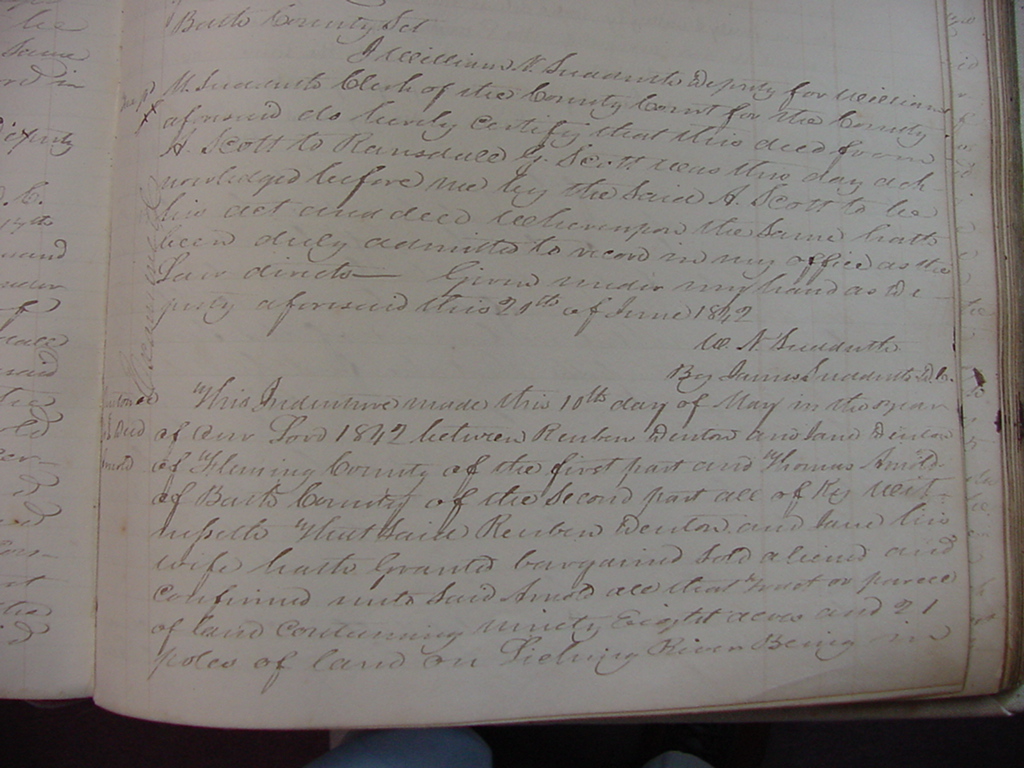 Bath County Sct
I William N. Sudduth Deputy for William
M. Sudduth Clerk of the County Court for the County
aforesaid do hereby certify that this deed from
A. Scott to Ransdall G. Scott was this day ack-
nowledged before me by the said A. Scott to be
his act and deed Whereupon the same hath
been duly admitted to record in my office as the
Law directs— Given under my hand as De-
puty aforesaid this 20th of June 1842
W. N. Sudduth
By James Sudduth D.C.
Denton &c
Deed
Arnold
This Indenture made this 10th day of May in the year
of our Lord 1842 between Reuben Denton and Jane Denton
of Fleming County of the first part and Thomas Arnold
of Bath County of the Second part all of Ky Wit-
nesseth That said Reuben Denton and Jane his
wife hath Granted bargained Sold aliend and
Confirmed unto Said Arnold all that Tract or parcel
of land Containing ninety Eight acres and 21
poles of land on Licking River Being in